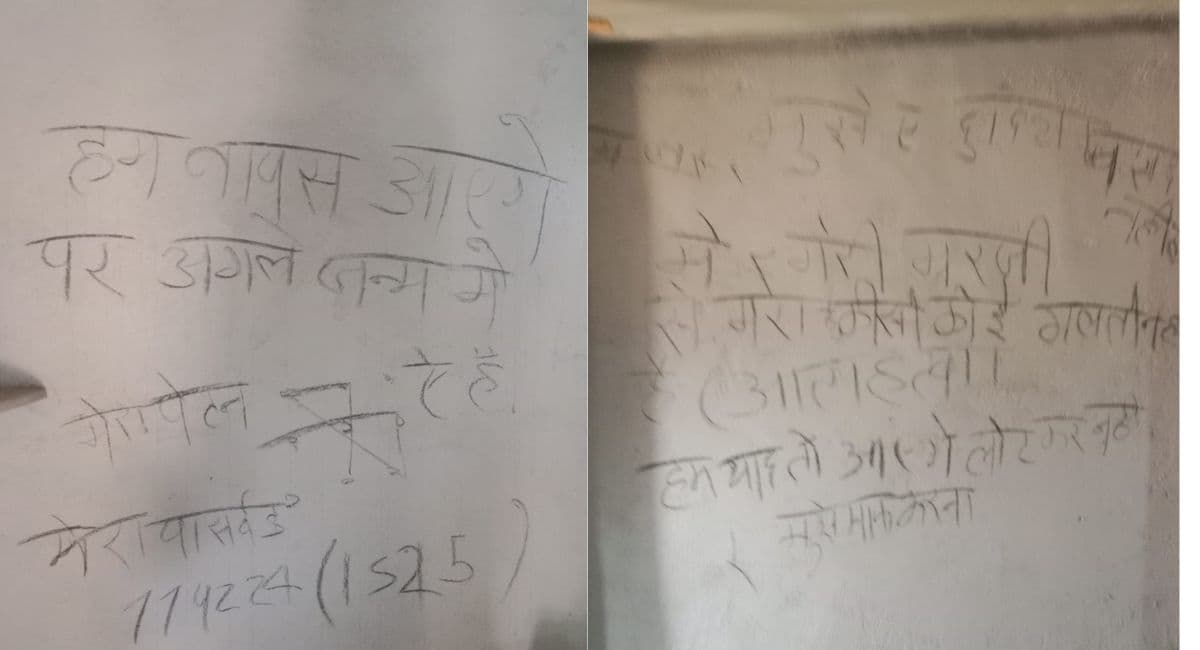 हम वापुस आएगे
पर अगले जन्म मे
मेरा पेटन ये है
मेरा पासर्वड
114224 (1525)
मेरी मरजी
से मेरा कीसी कोई गलती नही
है (आत्महत्या)
हम याद तो आएगे लोट कर नही
मुझे माफ करना